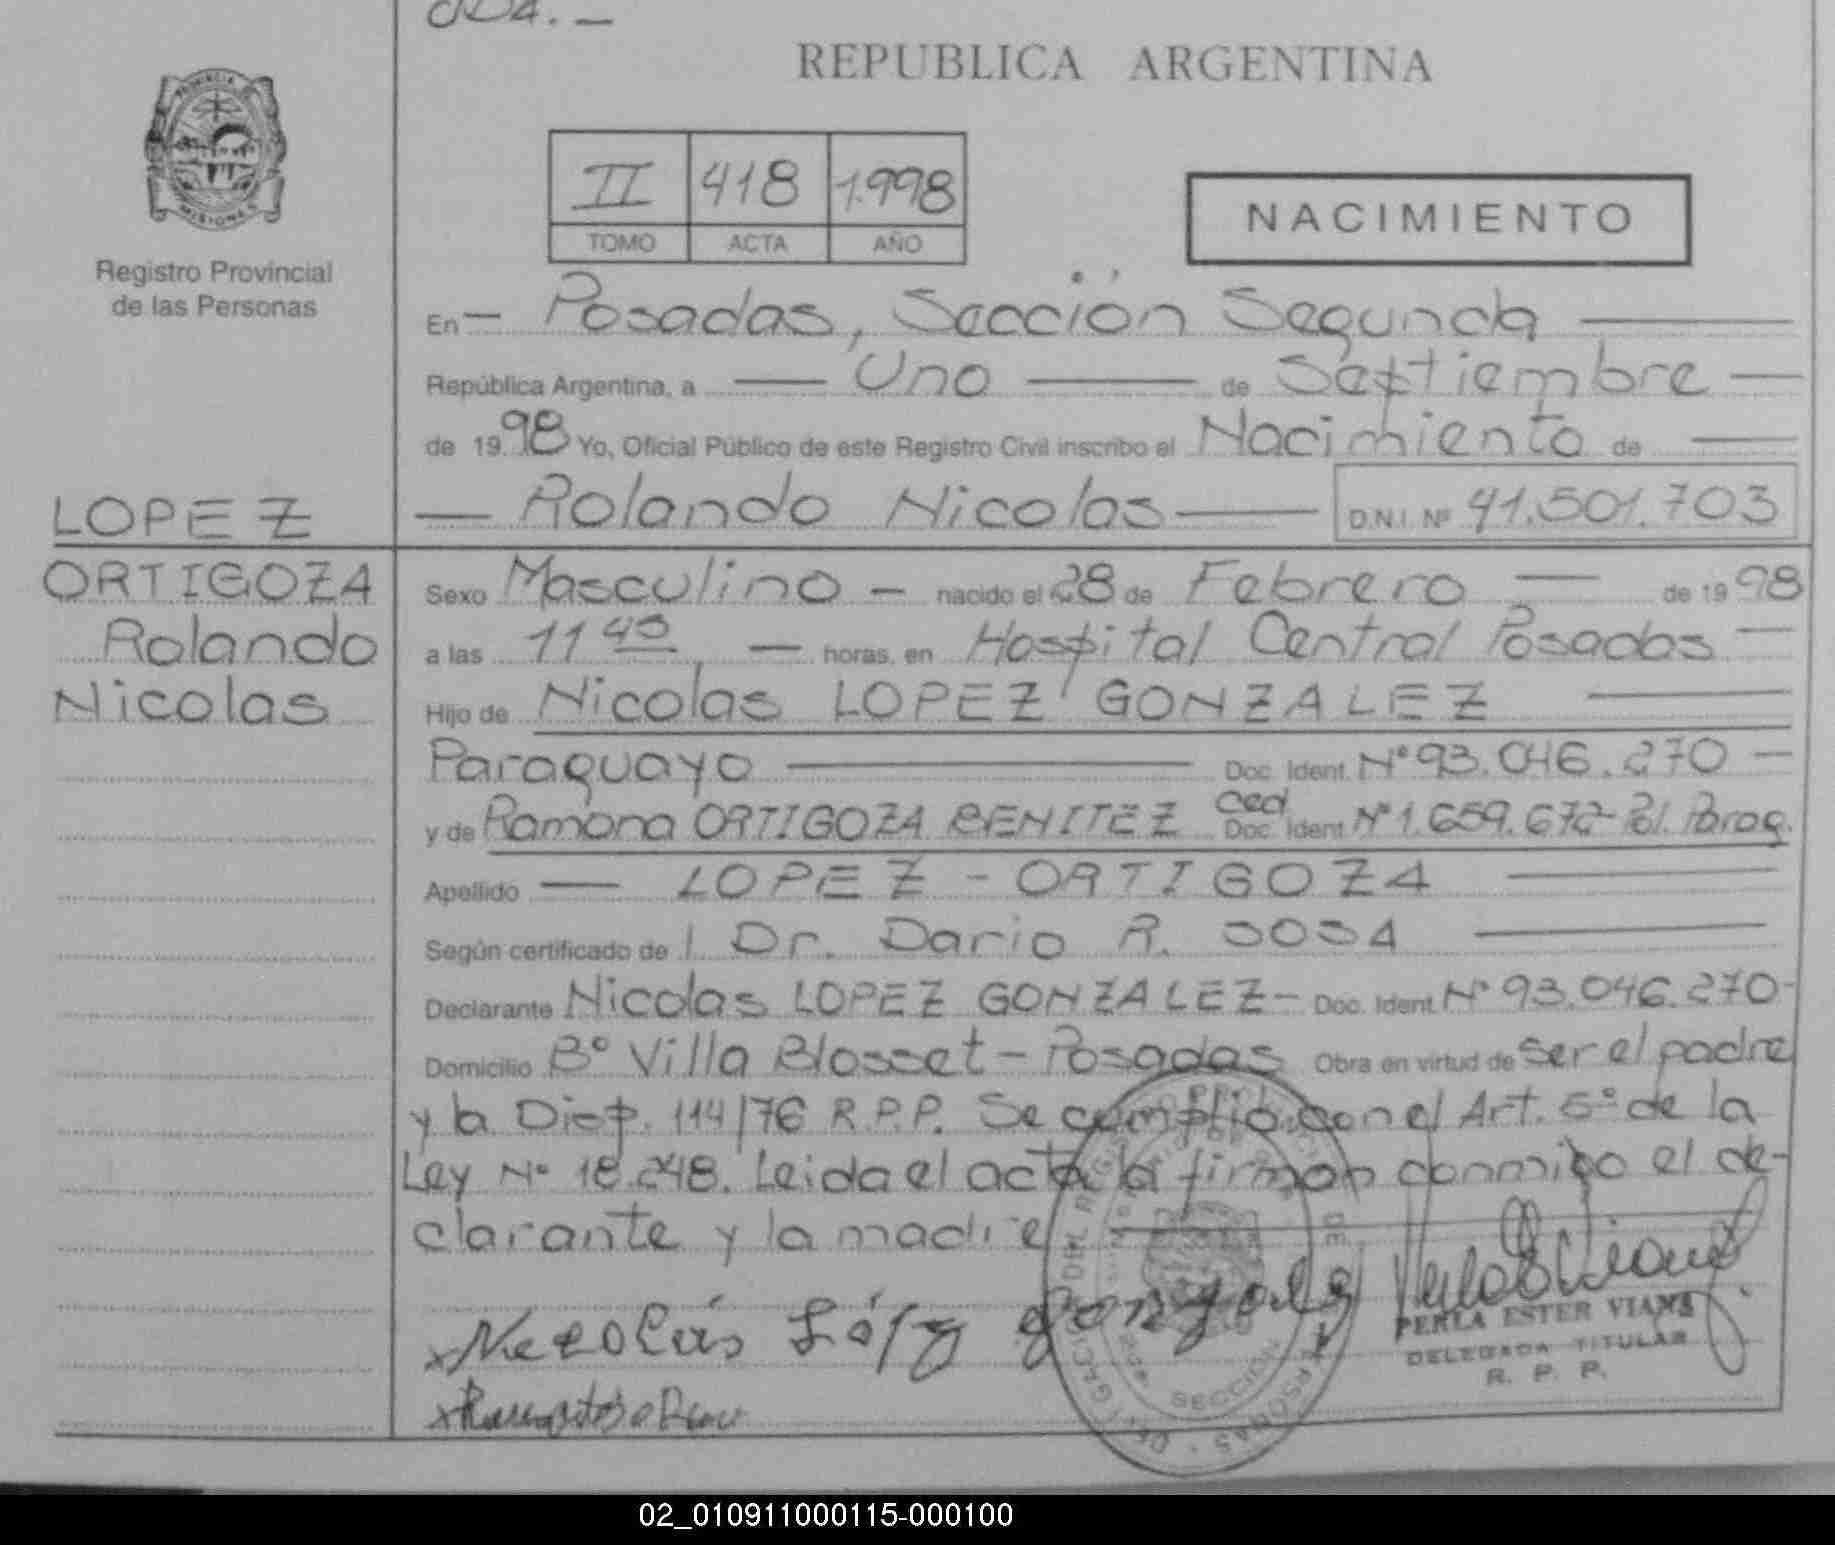 REPUBLICA ARGENTINA
PROVINCIA
MISIONES
Registro Provincial
de las Personas
II 418 1.998
TOMO ACTA AÑO
NACIMIENTO
En — Posadas, Sección Segunda —
República Argentina, a — Uno — de Septiembre —
de 19 98 Yo, Oficial Público de este Registro Civil inscribo el Nacimiento de —
— Rolando Nicolas — D.N.I. Nº 41.501.703
LOPEZ
ORTIGOZA
Rolando
Nicolas
Sexo Masculino — nacido el 28 de Febrero — de 19 98
a las 11 45 — horas, en Hospital Central Posadas —
Hijo de Nicolas LOPEZ GONZALEZ —
Paraguayo — Doc. Ident. Nº 93.046.270 —
y de Ramona ORTIGOZA BENITEZ Ced Doc. Ident. Nº 1.659.672- Pol. Parag.
Apellido — LOPEZ - ORTIGOZA —
Según certificado de l Dr. Dario R. SOSA —
Declarante Nicolas LOPEZ GONZALEZ - Doc. Ident. Nº 93.046.270-
Domicilio Bº Villa Blosset - Posadas Obra en virtud de ser el padre
y la Disp. 114/76 R.P.P. Se cumplio con el Art. 5º de la
Ley Nº 18.248. Leida el acta la firman conmigo el de-
clarante y la madre
x Nicolás López Gonzalez
PERLA ESTER VIANA
DELEGADA TITULAR
R. P. P.
SECCION
02_010911000115-000100